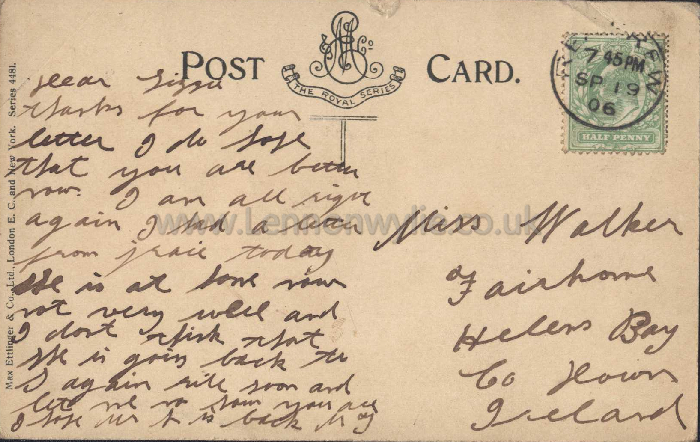 POST CARD.
THE ROYAL SERIES
Max Ettlinger & Co., Ltd., London E. C., and New York. Series 4481.
7 45 PM
SP 19
06
HALF PENNY
Dear Sissie
thanks for your
letter I do hope
that you are better
now. I am all right
again I had a letter
from today
She is at home now
not very well and
I dont think that
she is going back to
again rite soon and
let me no how you are
I hope is back
Miss Walker
Fairholme
Helens Bay
Co Down
Ireland
www.Lennonwylie.co.uk